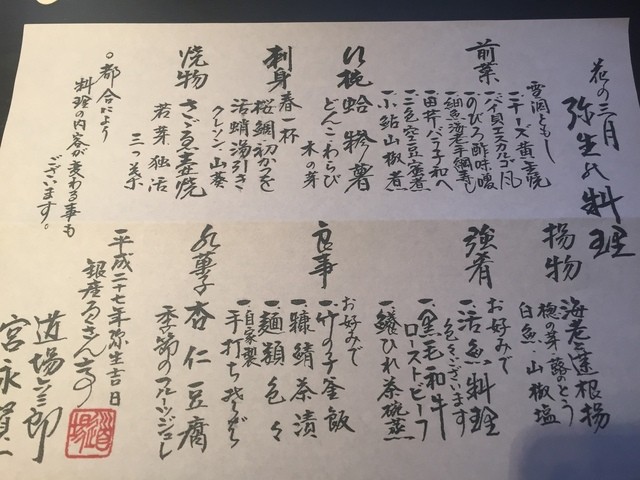 花の三月
弥生の料理
前菜
雪洞ともし
一、チーズ黄金焼
一、バイ貝エスカルゴ風
一、のびろ酢味噌
一、細魚海老手綱寿し
一、田芹バラ子和へ
一、三色空豆蜜煮
一、小鮎山椒煮
蛤糝薯
どんこわらび
木の芽
刺身
春一杯
桜鯛初かつを
活蛸湯引き
クレソン、山葵
焼物
さざゑ壺焼
若芽独活
三つ葉
○都合により
料理の内容が変わる事も
ございます。
揚物
海老蓮根揚
楤の芽・蕗のとう
白魚・山椒塩
強肴
お好みで
一、活魚料理
色々ございます
一、黒毛和牛
ローストビーフ
一、鱶ひれ茶碗蒸
食事
お好みで
一、竹の子釜飯
一、糠鯖茶漬
一、麺類色々
一、自家製
手打ちそば
水菓子
杏仁豆腐
季節のフルーツジュレ
平成二十七年弥生吉日
銀座ろくさん亭
道場六三郎
宮永賢一
道場